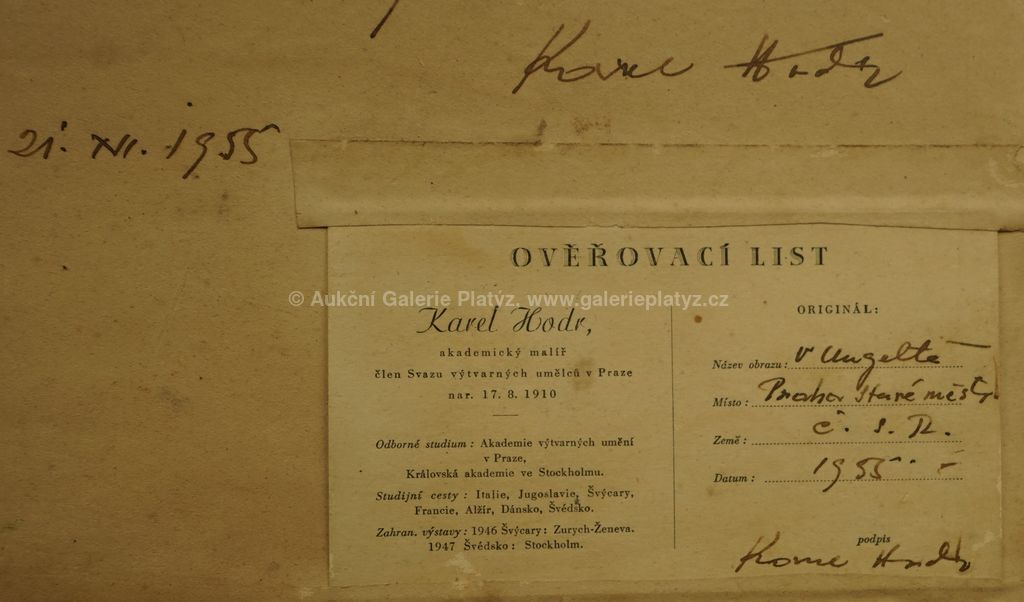 Karel Hodr
21. XI. 1955
OVĚŘOVACÍ LIST
© Aukční Galerie Platýz, www.galerieplatyz.cz
Karel Hodr,
akademický malíř
člen Svazu výtvarných umělců v Praze
nar. 17. 8. 1910
Odborné studium: Akademie výtvarných umění
v Praze,
Královská akademie ve Stockholmu.
Studijní cesty: Italie, Jugoslavie, Švýcary,
Francie, Alžír, Dánsko, Švédsko.
Zahran. výstavy: 1946 Švýcary: Zurych-Ženeva.
1947 Švédsko: Stockholm.
ORIGINÁL:
Název obrazu: V Ungeltě
Místo: Praha Staré město
Země: Č. S. R.
Datum: 1955
podpis
Karel Hodr